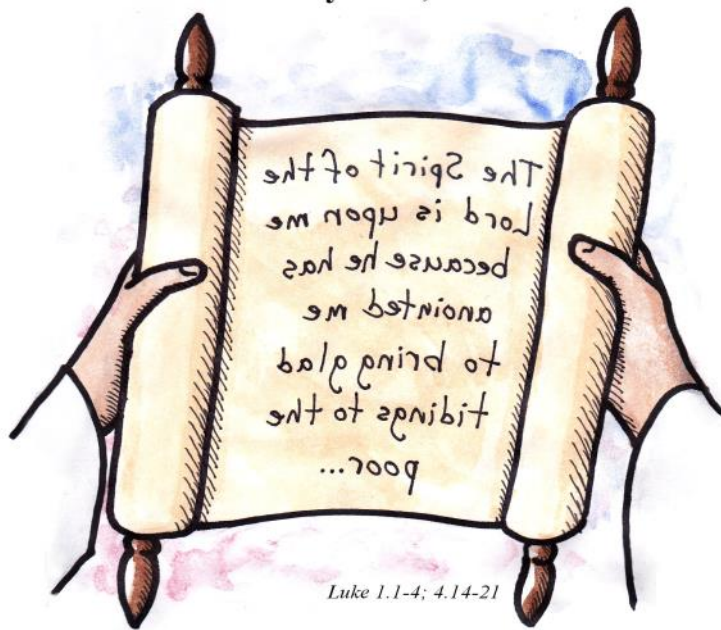 The Spirit of the
Lord is upon me
because he has
anointed me
to bring glad
tidings to the
poor...
Luke 1.1-4; 4.14-21